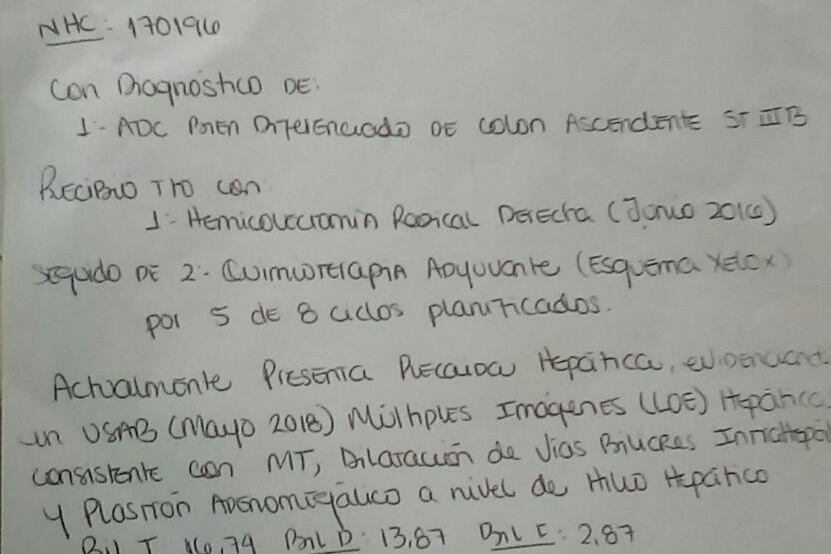 NHC: 170196
Con Diagnóstico DE:
1- ADC Bien Diferenciado DE Colon Ascendente ST IIIB
RECIBIO TTO con
1- Hemicolectomia Radical Derecha (Junio 2016)
seguido DE 2- Quimioterapia Adyuvante (Esquema Xelox)
por 5 de 8 ciclos planificados.
Actualmente Presenta Recaida Hepática, evidenciand
en USAB (Mayo 2018) Múltiples Imágenes (LOE) Hepática
consistente con MT, Dilatación de Vías Biliares Intrahepát
y Plastrón Adenomegálico a nivel de Hilio Hepático
Bil T 16,74 Bil D: 13,87 Bil I: 2,87